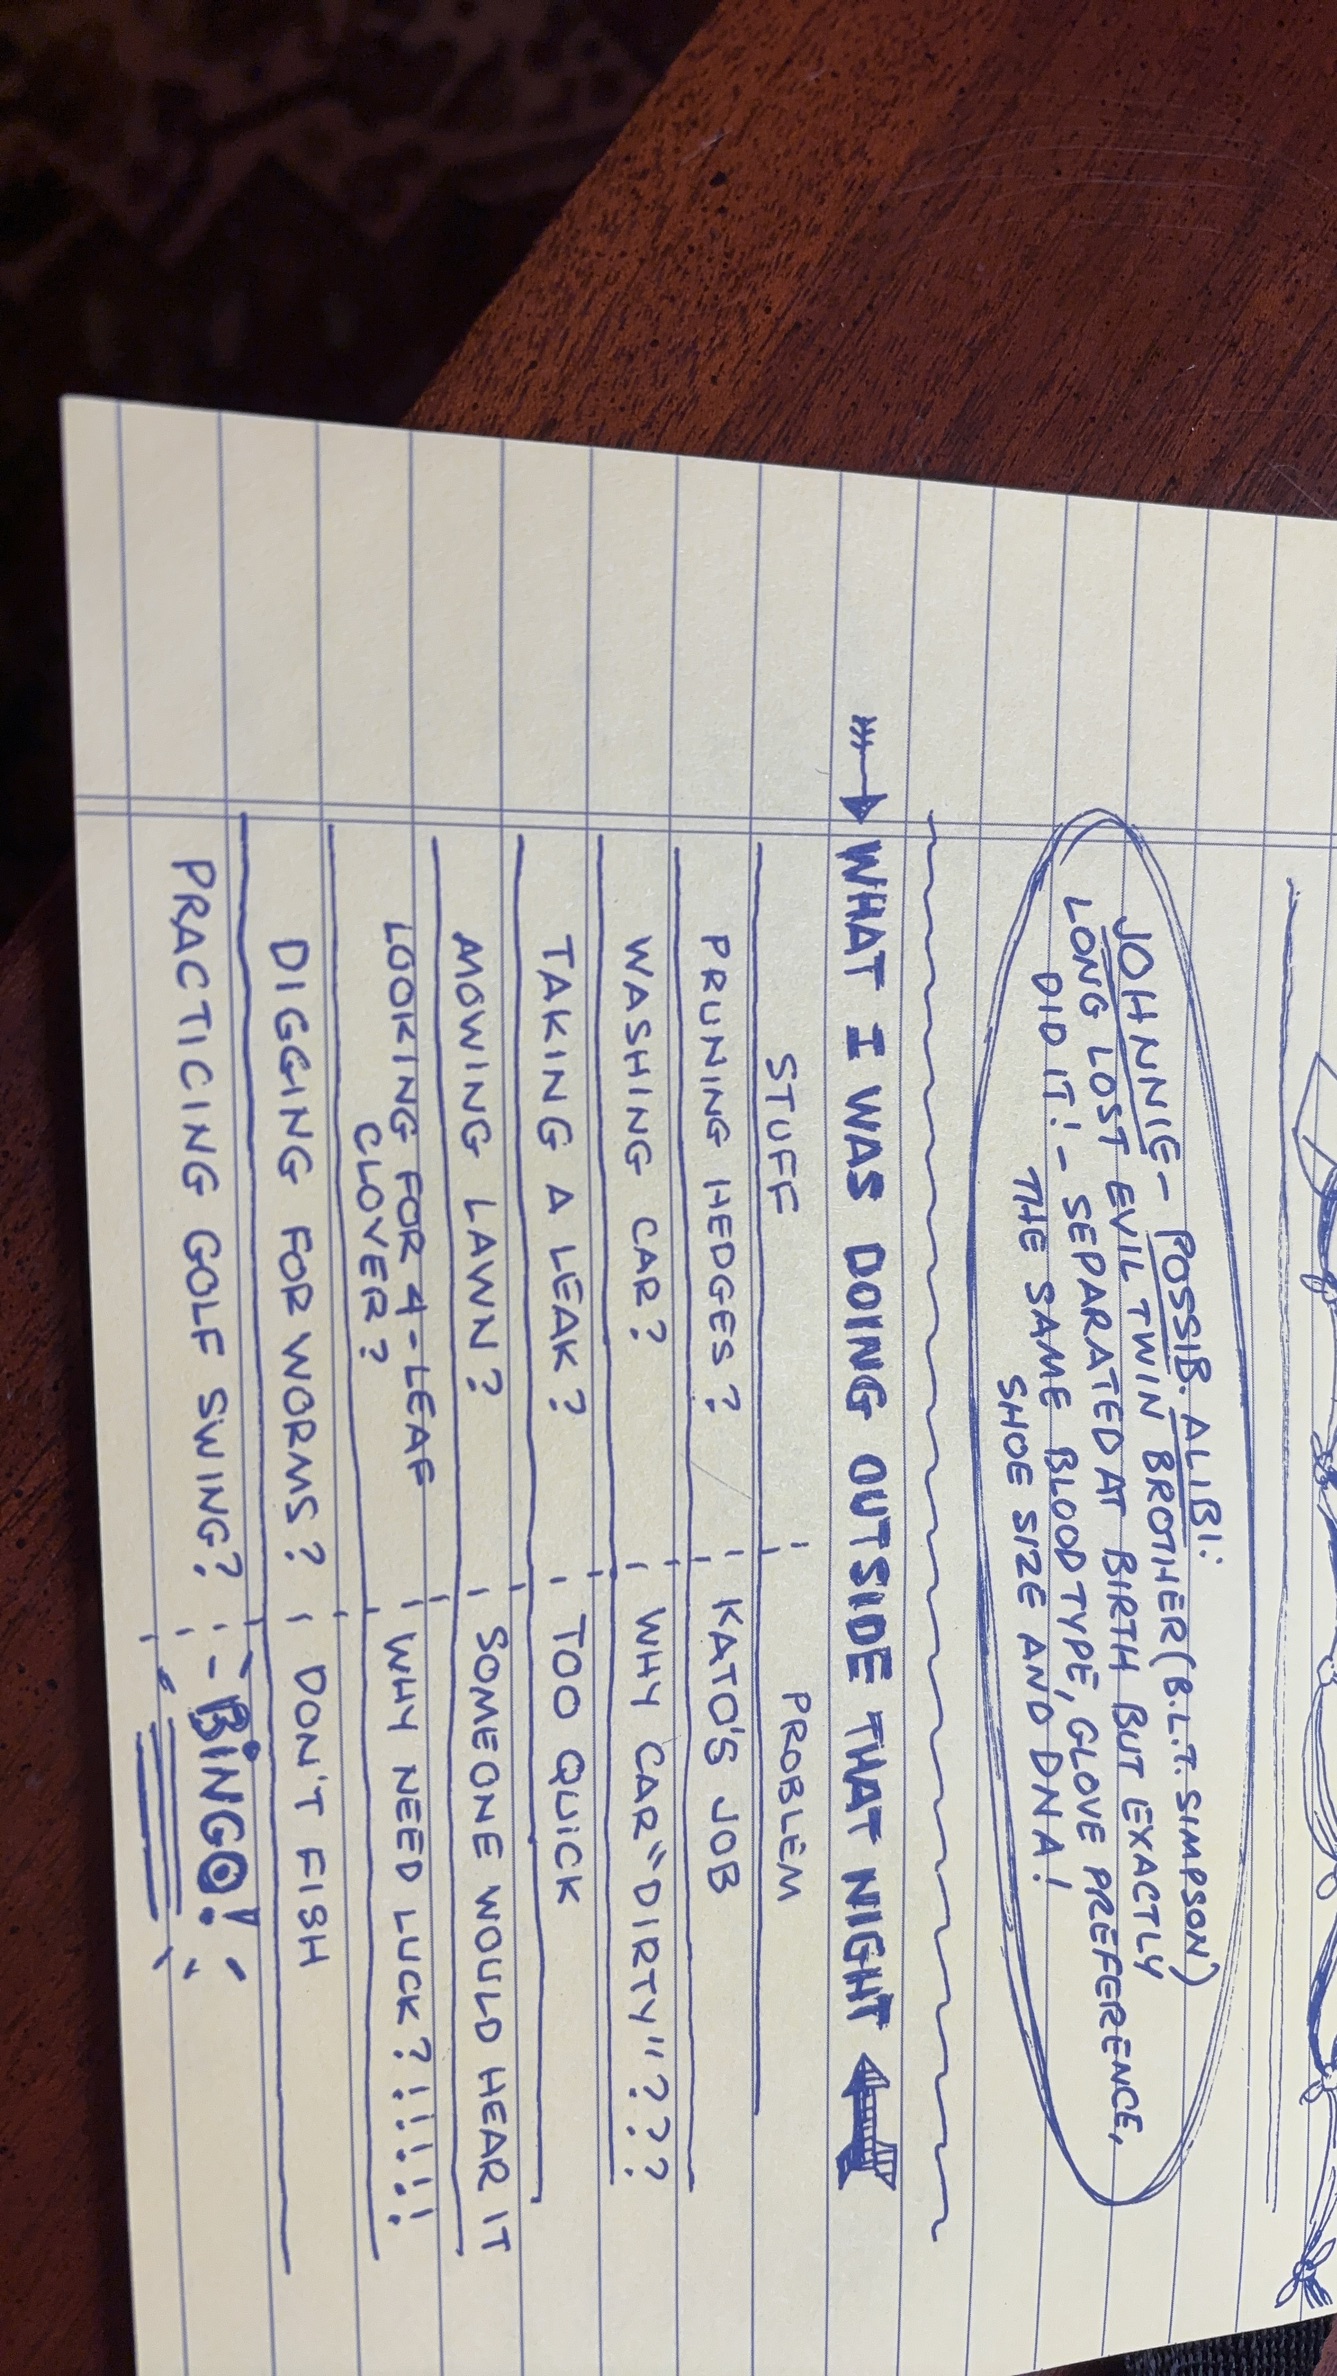 JOHNNIE - POSSIB. ALIBI:
LONG LOST EVIL TWIN BROTHER (B.L.T. SIMPSON)
DID IT! - SEPARATED AT BIRTH BUT EXACTLY
THE SAME BLOOD TYPE, GLOVE PREFERENCE,
SHOE SIZE AND DNA!
WHAT I WAS DOING OUTSIDE THAT NIGHT
STUFF PROBLEM
PRUNING HEDGES? KATO'S JOB
WASHING CAR? WHY CAR "DIRTY"???
TAKING A LEAK? TOO QUICK
MOWING LAWN? SOMEONE WOULD HEAR IT
LOOKING FOR 4-LEAF WHY NEED LUCK?!!!!!
CLOVER?
DIGGING FOR WORMS? DON'T FISH
PRACTICING GOLF SWING? - BINGO!